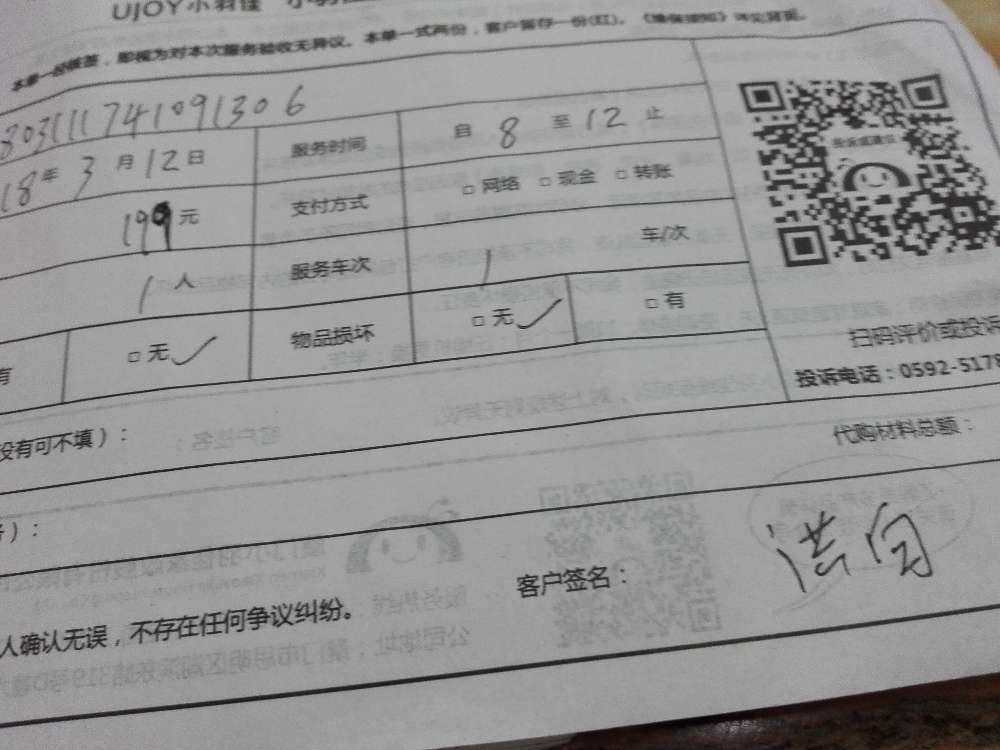 UJOY小羽佳
本单一经核签，即视为对本次服务验收无异议。本单一式两份，客户留存一份(红)。《维保须知》详见背面。
803111741091306
18年3月12日 服务时间 自 8 至 12 止
199元 支付方式 □ 网络 □ 现金 □ 转账
1 人 服务车次 1 车/次
有 □ 无 ✓ 物品损坏 □ 无 ✓ □ 有
投诉或建议
扫码评价或投诉
投诉电话：0592-5178
没有可不填）：
代购材料总额：
）：
客户签名：洪
人确认无误，不存在任何争议纠纷。